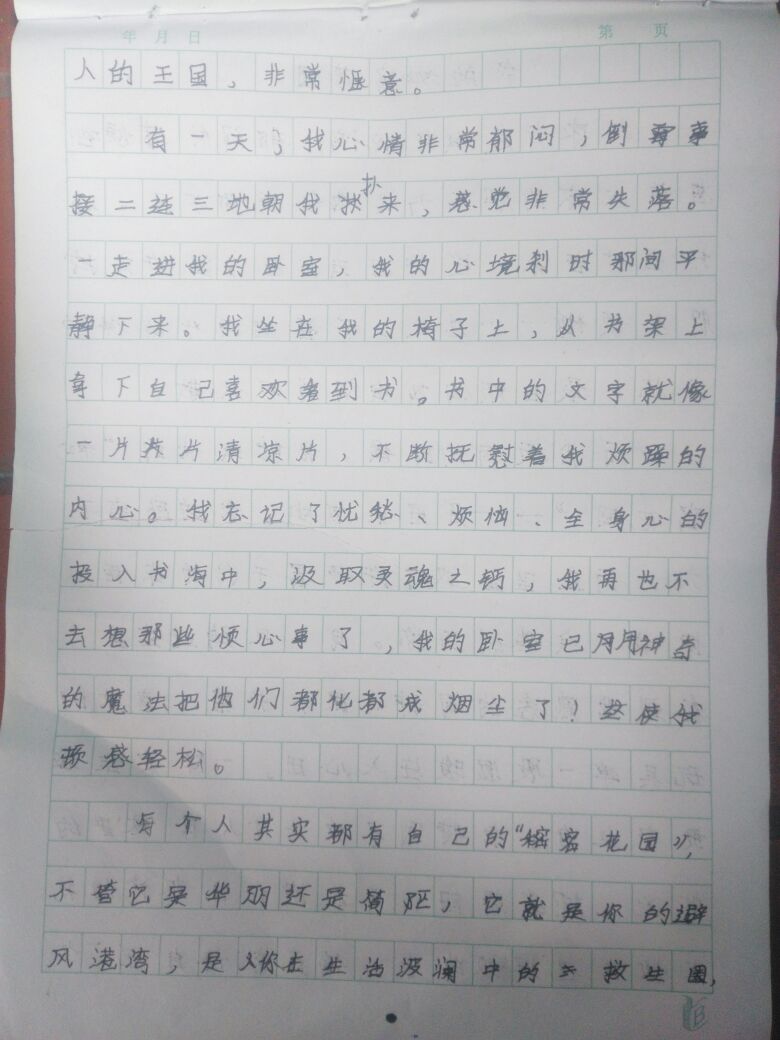 年 月 日 第 页
人的王国，非常惬意。
有一天，我心情非常郁闷，倒霉事
接二连三地朝我扑来，感觉非常失落。
一走进我的卧室，我的心境刹时那间平
静下来。我坐在我的椅子上，从书架上
拿下自己喜欢看到书。书中的文字就像
一片片清凉片，不断抚慰着我烦躁的
内心。我忘记了忧愁、烦恼、全身心的
投入书海中，汲取灵魂之钙，我再也不
去想那些烦心事了，我的卧室已用神奇
的魔法把他们都化都成烟尘了！这使我
顿感轻松。
每个人其实都有自己的“秘密花园”，
不管它是华丽还是简陋，它就是你的避
风港湾，是你在生活波澜中的救生圈，